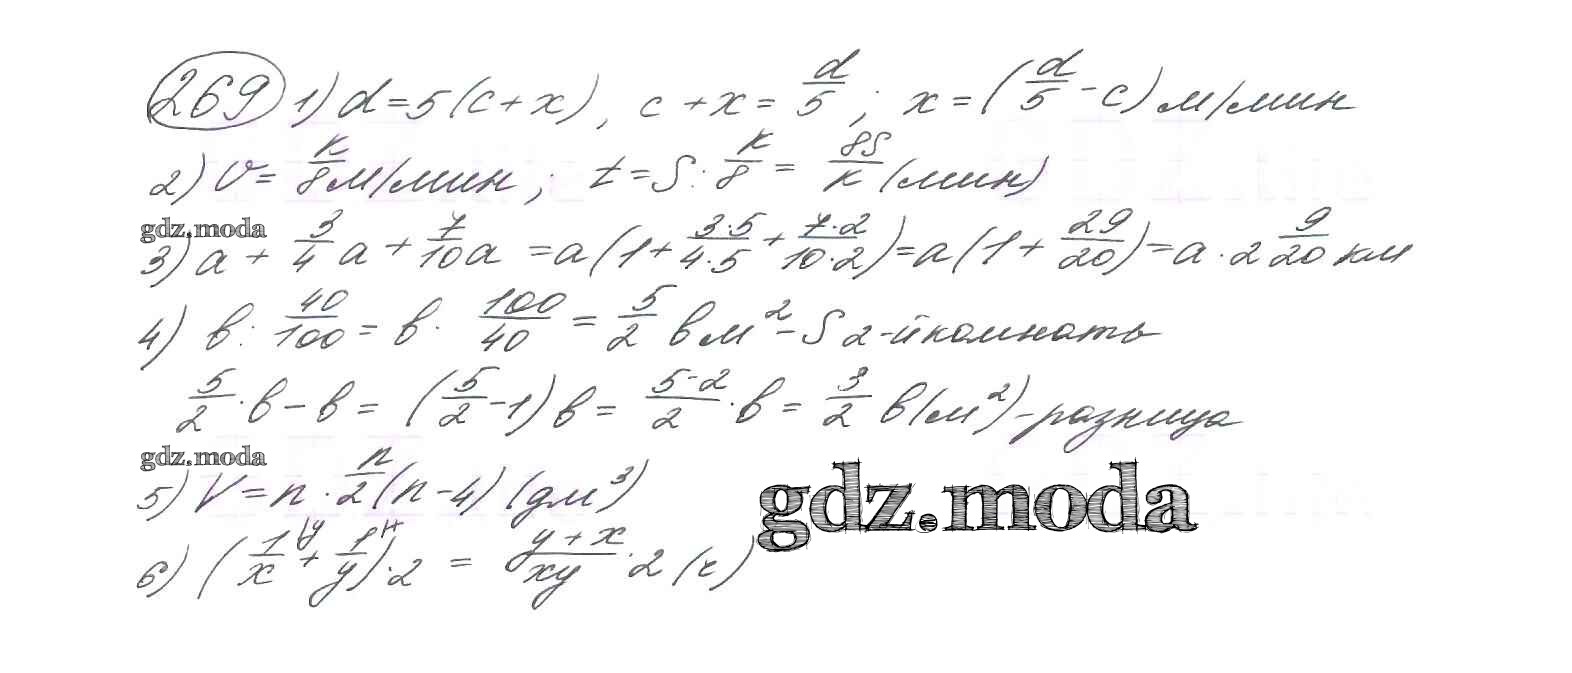 269 1) d = 5(c + x), c + x = d/5; x = (d/5 - c) м/мин
2) v = k/8 м/мин; t = S : k/8 = 8S/k (мин)
gdz.moda
3) a + 3/4 a + 7/10 a = a(1 + 3·5/4·5 + 7·2/10·2) = a(1 + 29/20) = a · 2 9/20 км
4) в : 40/100 = в · 100/40 = 5/2 в м² - S 2-й комнаты
5/2 · в - в = (5/2 - 1) в = 5-2/2 · в = 3/2 в (м²) - разница
gdz.moda
5) V = n · n/2 (n - 4) (дм³)
gdz.moda
6) (1/x \y + 1/y \x) · 2 = y + x/xy · 2 (г)